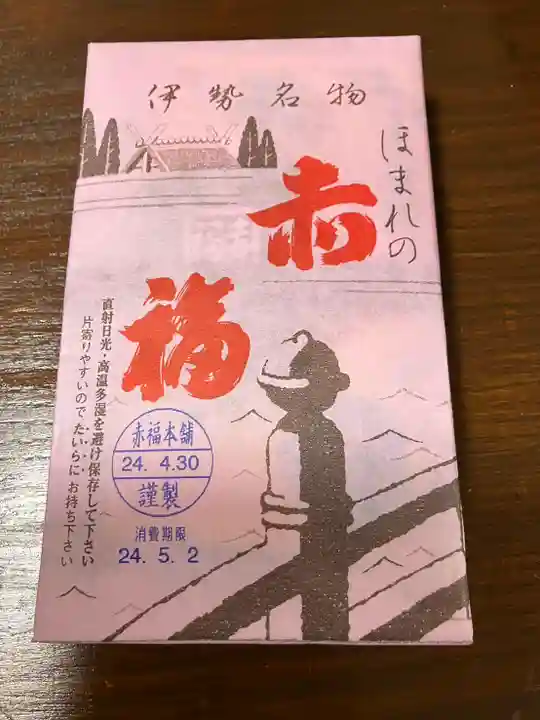 伊勢名物
ほまれの
赤福
直射日光・高温多湿を避け保存して下さい
片寄りやすいのでたいらにお持ち下さい
赤福本舗
24. 4.30
謹製
消費期限
24. 5. 2